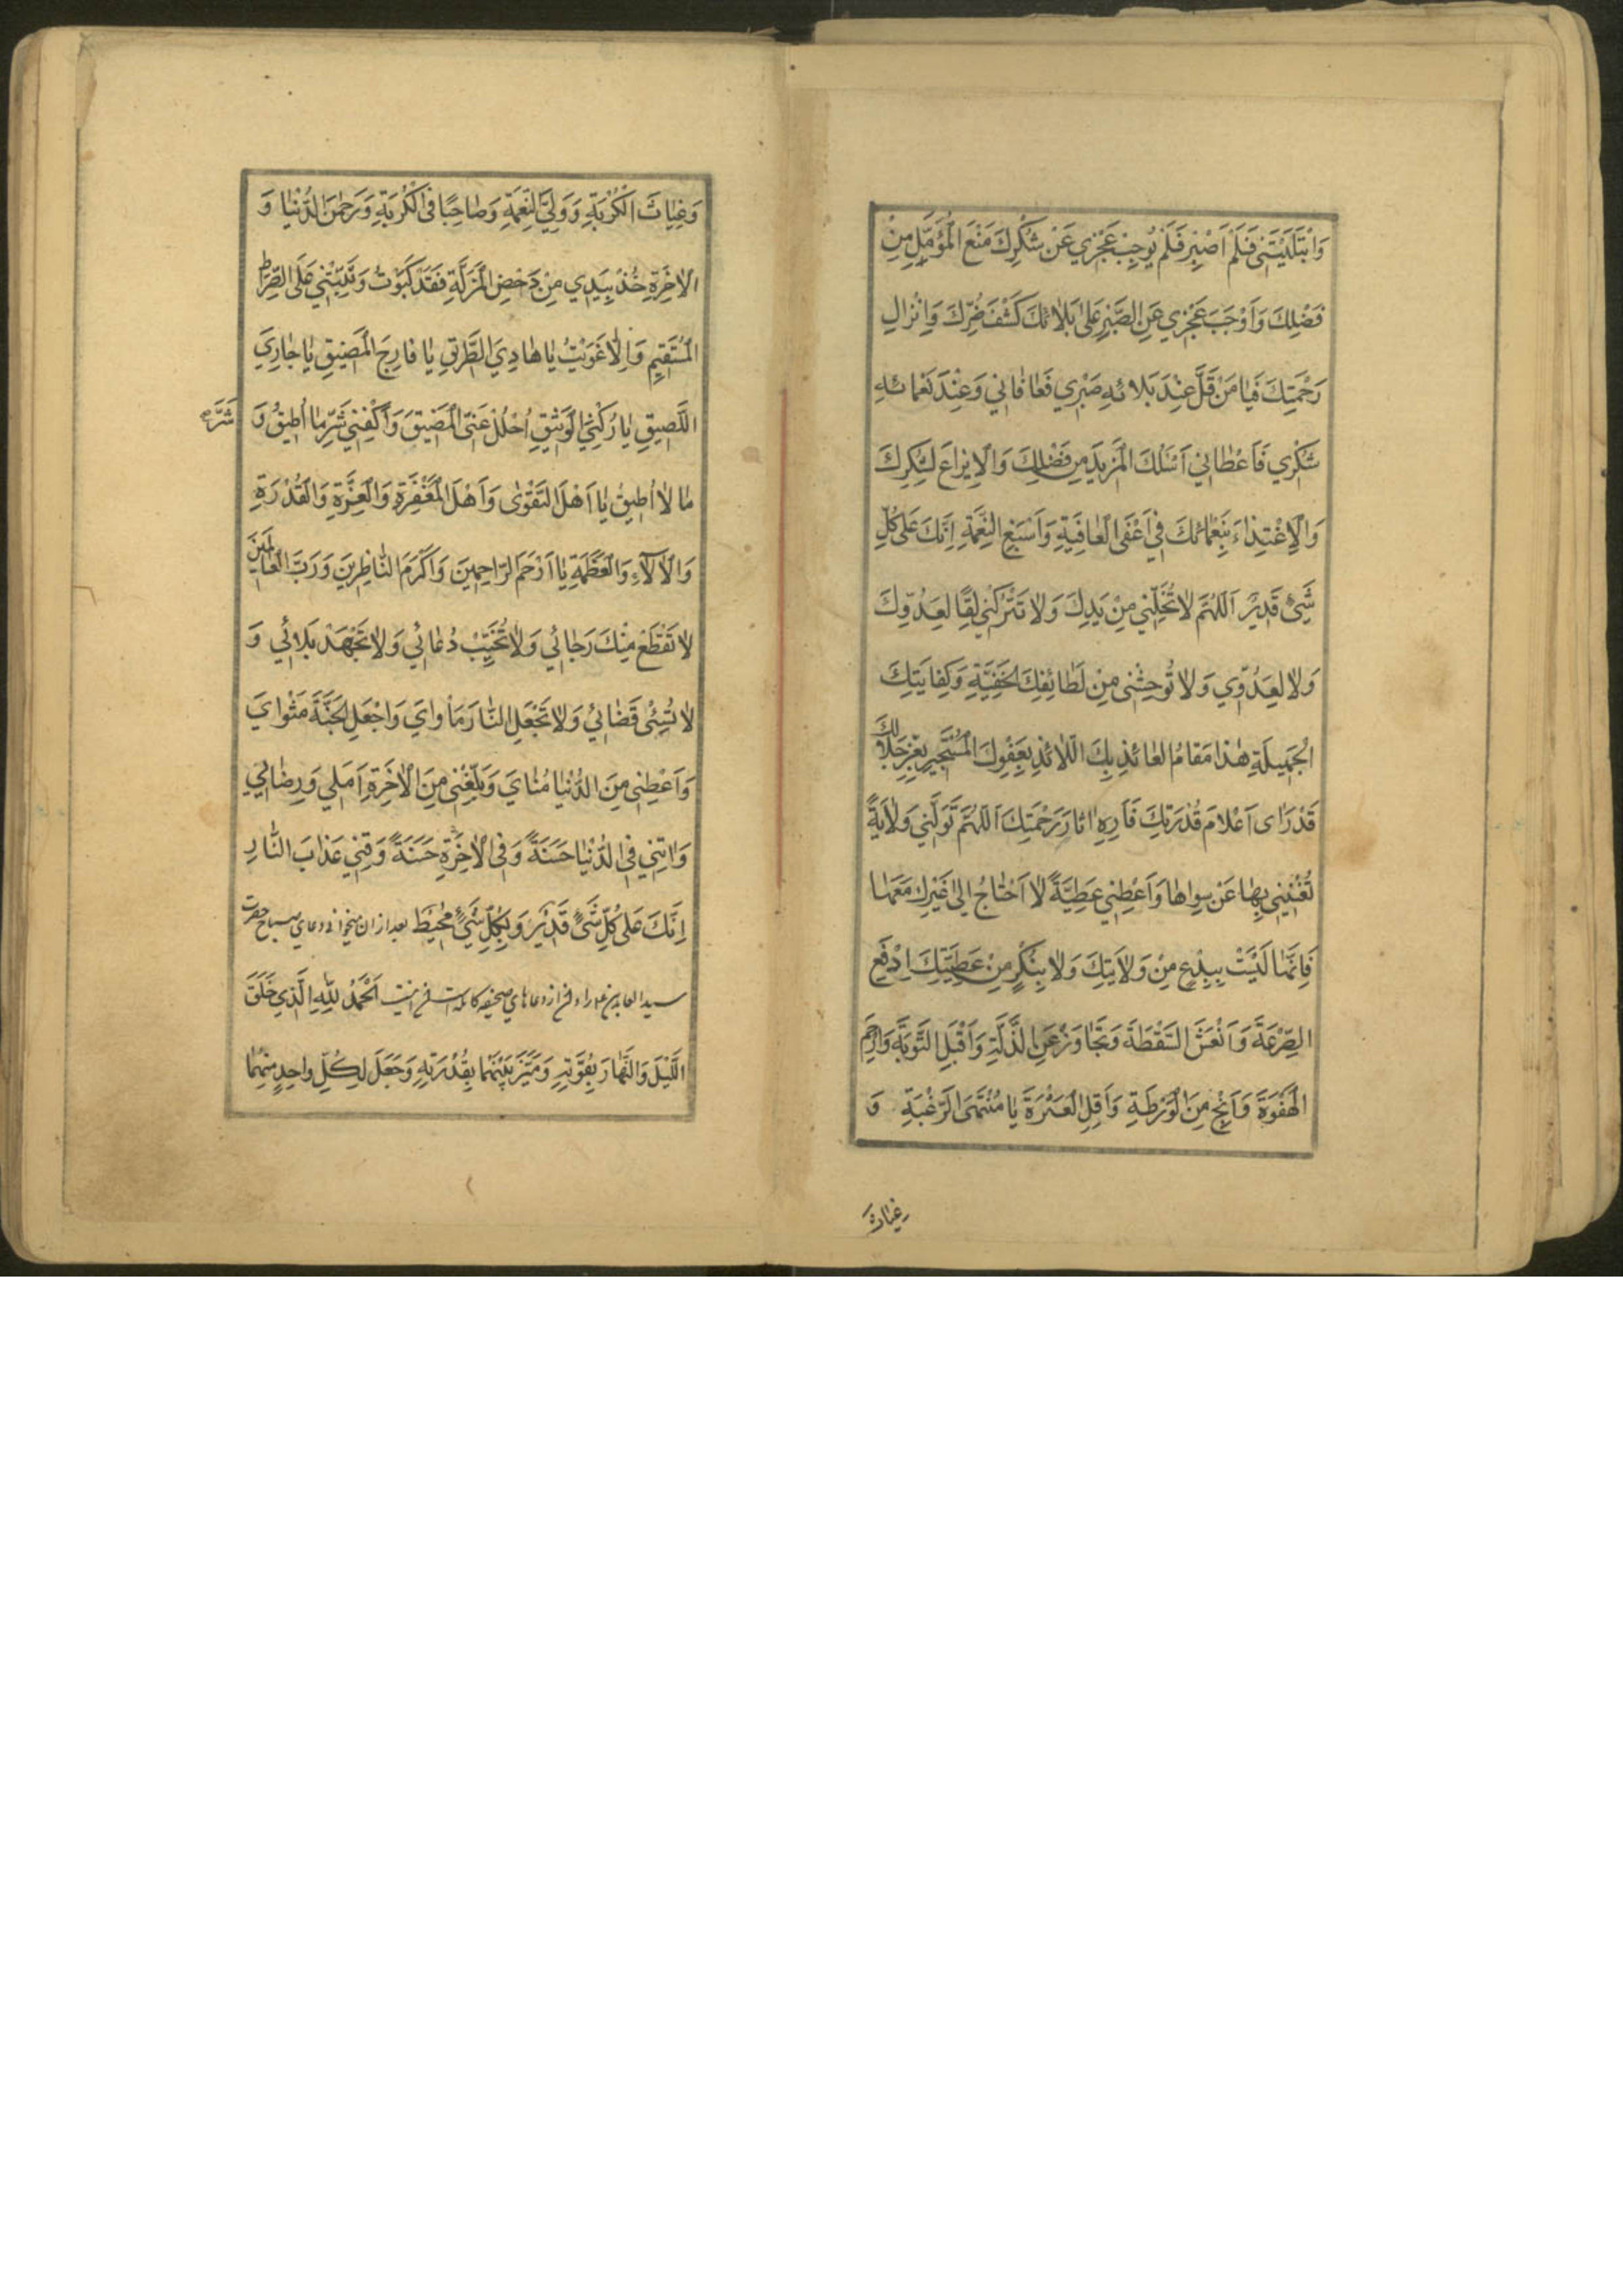 وَابْتَلَيْتَنى فَلَمْ اَصْبِرْ فَلَمْ يُوجِبْ عَجْزي عَنْ شُكْرِكَ مَنْعَ الْمُؤَمَّلِ مِنْ
فَضْلِكَ وَاَوْجَبَ عَجْزي عَنِ الصَّبْرِ عَلى بَلائِكَ كَشْفَ ضُرِّكَ وَاِنْزالِ
رَحْمَتِكَ فَيا مَنْ قَلَّ عِنْدَ بَلائِهِ صَبْري فَعافاني وَعِنْدَ نَعْمائِهِ
شُكْري فَاَعْطاني اَسْئَلُكَ الْمَزيدَ مِنْ فَضْلِكَ وَالْايزاعَ لِشُكْرِكَ
وَالْاِعْتِدٰاءَ بِنَعْمائِكَ في اَعْفَى الْعافِيَةِ وَاَسْبَغِ النِّعْمَةِ اِنَّكَ عَلى كُلِّ
شَيْءٍ قَديرٌ اَللّهُمَّ لا تُخَلِّني مِنْ يَدِكَ وَلا تَتْرُكْني لِقًا لِعَدُوِّكَ
وَلا لِعَدُوّي وَلا تُوحِشْني مِنْ لَطائِفِكَ الْخَفِيَّةِ وَكِفايَتِكَ
الْجَميلَةِ هذا مَقامُ الْعائِذِ بِكَ اللّائِذِ بِعَفْوِكَ الْمُسْتَجيرِ بِعِزِّ جَلالِكَ
قَدْ رَاى اَعْلامَ قُدْرَتِكَ فَاَرِهِ اثارَ رَحْمَتِكَ اَللّهُمَّ تَوَلَّني وَلايَةً
تُغْنيني بِها عَنْ سِواها وَاَعْطِني عَطِيَّةً لا اَحْتاجُ اِلى غَيْرِكَ مَعَها
فَاِنَّها لَيْسَتْ بِبِدْعٍ مِنْ وَلايَتِكَ وَلا بِنُكْرٍ مِنْ عَطِيَّتِكَ اِدْفَعِ
الصَّرْعَةَ وَانْعَشِ السَّقْطَةَ وَتَجاوَزْ عَنِ الذَّلَّةِ وَاَقْبَلِ التَّوْبَةَ وَارْحَمِ
الْهَفْوَةَ وَاَنْجِ مِنَ الْوَرْطَةِ وَاَقِلِ الْعَثْرَةَ يا مُنْتَهَى الرَّغْبَةِ وَ
غياث
وَغِياثَ الْكُرْبَةِ وَوَلِيَّ النِّعْمَةِ وَصاحِبًا فِى الْكُرْبَةِ وَرَحْمنَ الدُّنْيا وَ
الْاخِرَةِ خُذْ بِيَدِي مِنْ دَحْضِ الْمَزَلَّةِ فَقَدْ كَبَوْتُ وَثَبِّتْني عَلَى الصِّراطِ
الْمُسْتَقيمِ وَاِلّا غَوَيْتُ يا هادِيَ الطَّريقِ يا فارِجَ الْمَضيقِ يا جارِيَ
اللَّصيقِ يا رُكْنِيَ الْوَثيقِ اُحْلُلْ عَنِّى الْمَضيقَ وَاكْفِني شَرَّ ما اُطيقُ وَ
شَرَّ
ما لا اُطيقُ يا اَهْلَ التَّقْوى وَاَهْلَ الْمَغْفِرَةِ وَالْعِزَّةِ وَالْقُدْرَةِ
وَالْالاءِ وَالْعَظَمَةِ يا اَرْحَمَ الرّاحِمينَ وَاَكْرَمَ النّاظِرينَ وَرَبَّ الْعالَمينَ
لا تَقْطَعْ مِنْكَ رَجائي وَلا تُخَيِّبْ دُعائي وَلا تَجْهَدْ بَلائي وَ
لا تُسِئْ قَضائي وَلا تَجْعَلِ النّارَ مَأْوايَ وَاجْعَلِ الْجَنَّةَ مَثْوايَ
وَاَعْطِني مِنَ الدُّنْيا مُنايَ وَبَلِّغْني مِنَ الْاخِرَةِ اَمَلي وَرِضائي
وَاتِني فِي الدُّنْيا حَسَنَةً وَفِى الْاخِرَةِ حَسَنَةً وَقِني عَذابَ النّارِ
اِنَّكَ عَلى كُلِّ شَيْءٍ قَديرٌ وَبِكُلِّ شَيْءٍ مُحيطٌ بعد از ان ميخوانى دعاي صباح حضرت
سيد العابدين را از دعاهاي صحيفه كامله است اَلْحَمْدُ لِلّهِ الَّذي خَلَقَ
اللَّيْلَ وَالنَّهارَ بِقُوَّتِهِ وَمَيَّزَ بَيْنَهُما بِقُدْرَتِهِ وَجَعَلَ لِكُلِّ واحِدٍ مِنْهُما